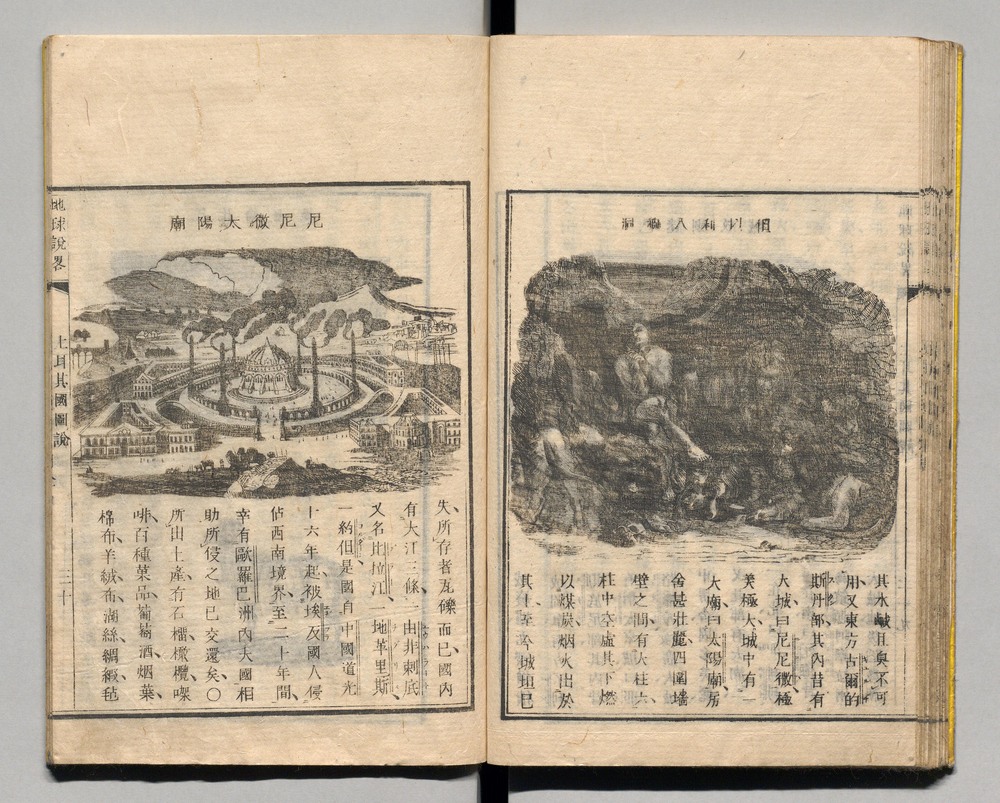 但以利八獅洞
其水鹹且臭不可
用又東方古爾的
斯丹部其內昔有
大城曰尼尼微極
美極大城中有一
大廟曰太陽廟房
舍甚壯麗四圍墻
壁之間有大柱六
柱中空虛其下燃
以煤炭烟火出於
其上至今城垣已
尼尼微太陽廟
失所存者瓦礫而已國內
有大江三條一由非剌底
又名出拉江一地革里斯
一約但是國自中國道光
十六年起被埃及國人侵
佔西南境界至二十年間
幸有歐羅巴洲內大國相
助所侵之地已交還矣〇
所出土產有石橿橄欖㗎
啡百種菓品葡萄酒烟葉
棉布羊絨布湖絲綢緞毡
地球說畧
土耳其國圖說
三十